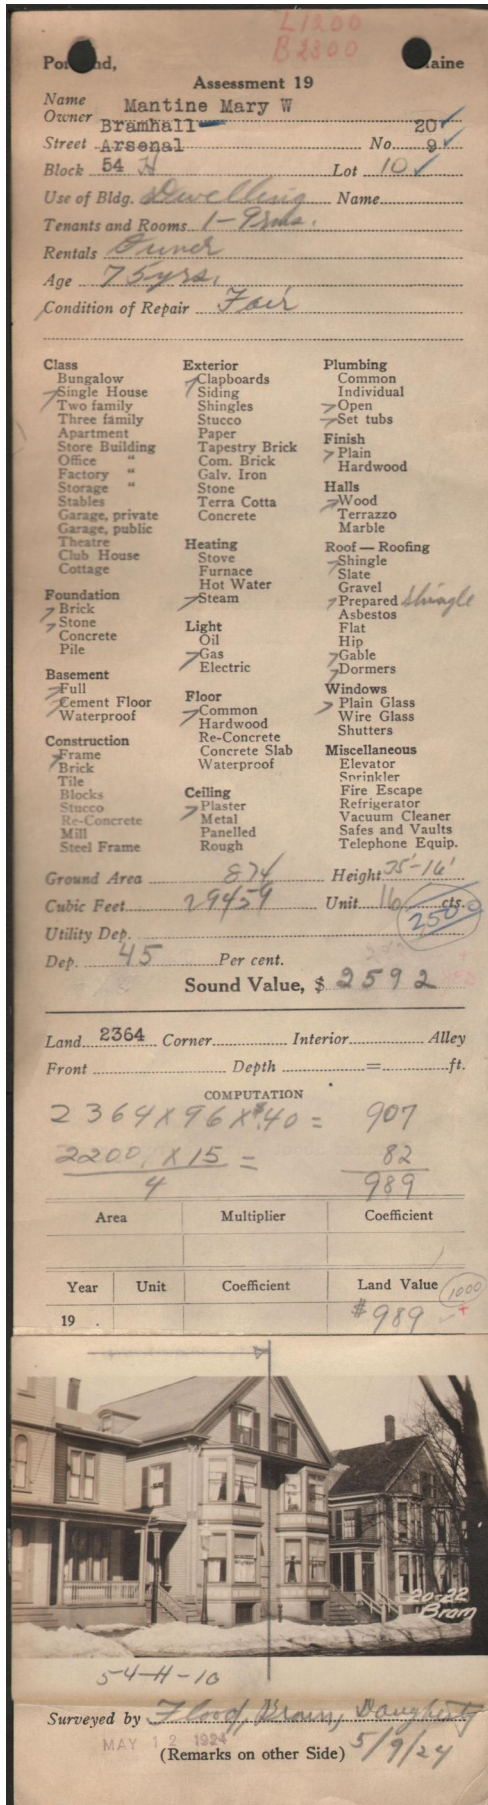 L1200
B2300
Portland, Maine
Assessment 19
Name
Owner Mantine Mary W
Bramhall 20
Street Arsenal No. 9
Block 54 H Lot 10
Use of Bldg. Dwelling Name
Tenants and Rooms 1-9rms.
Rentals Owner
Age 75yrs.
Condition of Repair Fair
Class
Bungalow
Single House
Two family
Three family
Apartment
Store Building
Office "
Factory "
Storage "
Stables
Garage, private
Garage, public
Theatre
Club House
Cottage
Foundation
Brick
Stone
Concrete
Pile
Basement
Full
Cement Floor
Waterproof
Construction
Frame
Brick
Tile
Blocks
Stucco
Re-Concrete
Mill
Steel Frame
Exterior
Clapboards
Siding
Shingles
Stucco
Paper
Tapestry Brick
Com. Brick
Galv. Iron
Stone
Terra Cotta
Concrete
Heating
Stove
Furnace
Hot Water
Steam
Light
Oil
Gas
Electric
Floor
Common
Hardwood
Re-Concrete
Concrete Slab
Waterproof
Ceiling
Plaster
Metal
Panelled
Rough
Plumbing
Common
Individual
Open
Set tubs
Finish
Plain
Hardwood
Halls
Wood
Terrazzo
Marble
Roof — Roofing
Shingle
Slate
Gravel
Prepared Shingle
Asbestos
Flat
Hip
Gable
Dormers
Windows
Plain Glass
Wire Glass
Shutters
Miscellaneous
Elevator
Sprinkler
Fire Escape
Refrigerator
Vacuum Cleaner
Safes and Vaults
Telephone Equip.
Ground Area 874 Height 35'-16'
Cubic Feet 29459 Unit 16 cts.
2500
Utility Dep.
Dep. 45 Per cent.
Sound Value, $ 2592
Land 2364 Corner Interior Alley
Front Depth = ft.
COMPUTATION
2364 X 96 X $.40 = 907
2200 X 15 = 82
4 989
Area Multiplier Coefficient
Year Unit Coefficient Land Value 1000
19 . $989
20-22
Bram
54-H-10
Surveyed by Flood, Brown, Daugherty
MAY 12 1924
(Remarks on other Side) 5/9/24